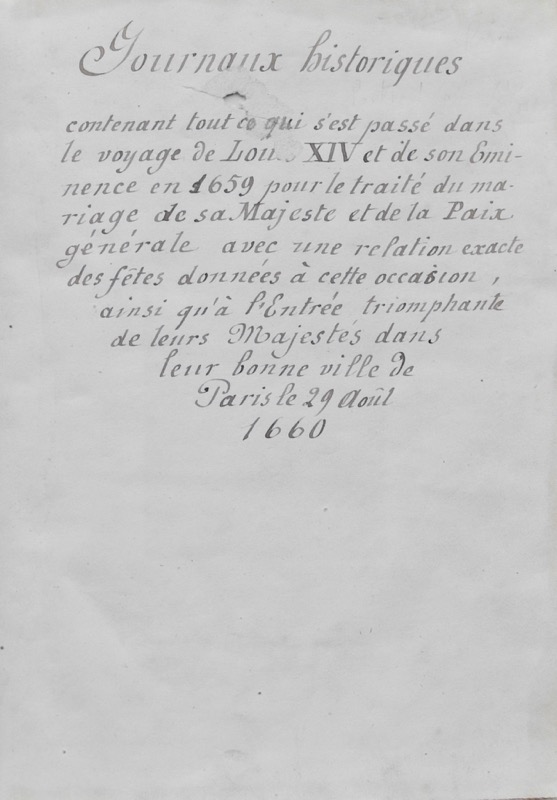 Journaux historiques
contenant tout ce qui s'est passé dans
le voyage de Lou s XIV et de son Emi-
nence en 1659 pour le traité du ma-
riage de sa Majeste et de la Paix
générale avec une relation exacte
des fêtes données à cette occasion,
ainsi qu'à l'Entrée triomphante
de leurs Majestés dans
leur bonne ville de
Paris le 29 Août
1660